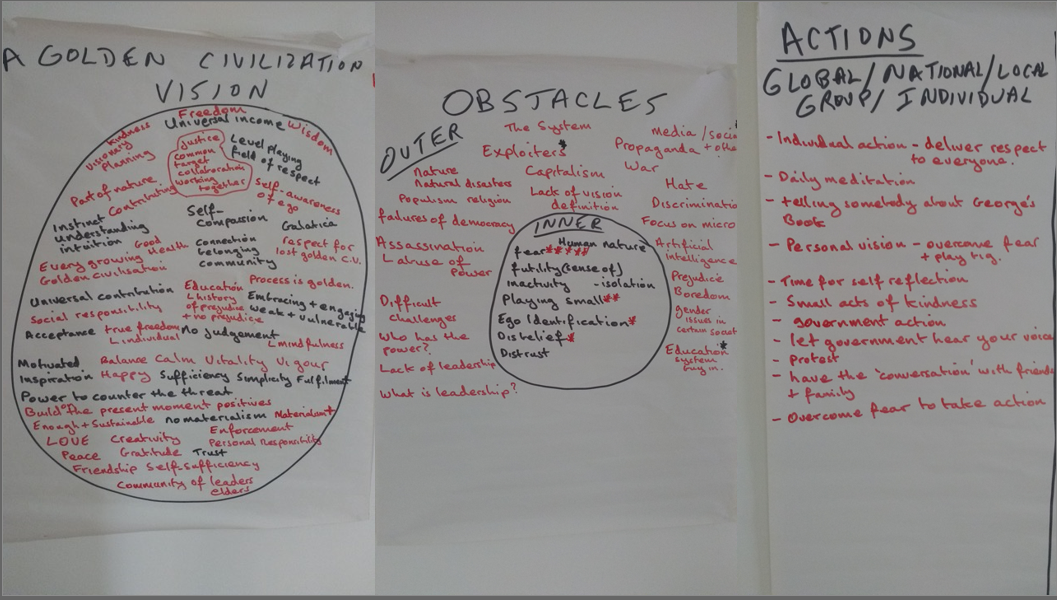 A GOLDEN CIVILIZATION
VISION
Freedom
Universal income
Wisdom
Kindness
Visionary
Planning
Justice
common
target
collaboration
working
together
Level playing
field of respect
Part of nature
Contributing
Self-awareness
of ego
Instinct
understanding
intuition
Self-
Compassion
Galatica
Good
Health
Connection
belonging
community
respect for
lost golden C.V.
Every growing
Golden Civilisation
Education
L history
of prejudice
+ no prejudice
Process is golden.
Universal contribution
Embracing + engaging
weak + vulnerable
Social responsibility
Acceptance
true freedom
L individual
No judgement
L mindfulness
Motivated
Balance Calm Vitality Vigour
Inspiration Happy Sufficiency Simplicity Fulfilment
Power to counter the threat
Build the present moment positives
Enough + Sustainable no materialism
Enforcement
LOVE Creativity
Personal Responsibility
Peace Gratitude Trust
Friendship Self-sufficiency
Community of leaders
elders
OBSTACLES
OUTER
The System
Exploiters*
Capitalism
Media /
Propaganda +
War
Nature
Natural disasters
Populism religion
Lack of vision
definition
Hate
failures of democracy
Focus on micro
Assassination
L abuse of
Power
Artificial
intelligence
Prejudice
Boredom
gender
issues in
certain
Difficult
challenges
Who has the
power?
Education*
system
buy in.
Lack of leadership
What is leadership?
INNER
Human nature
fear*****
futility (sense of)
Inactivity - isolation
Playing small**
Ego Identification*
Disbelief*
Distrust
ACTIONS
GLOBAL/NATIONAL/LOCAL
GROUP/INDIVIDUAL
- Individual action - deliver respect
to everyone.
- Daily meditation
- telling somebody about George's
Book
- Personal vision - overcome fear
+ play big.
- Time for self reflection
- Small acts of kindness
- government action
- let government hear your voice
- Protest
- have the 'conversation' with friends
+ family
- Overcome fear to take action